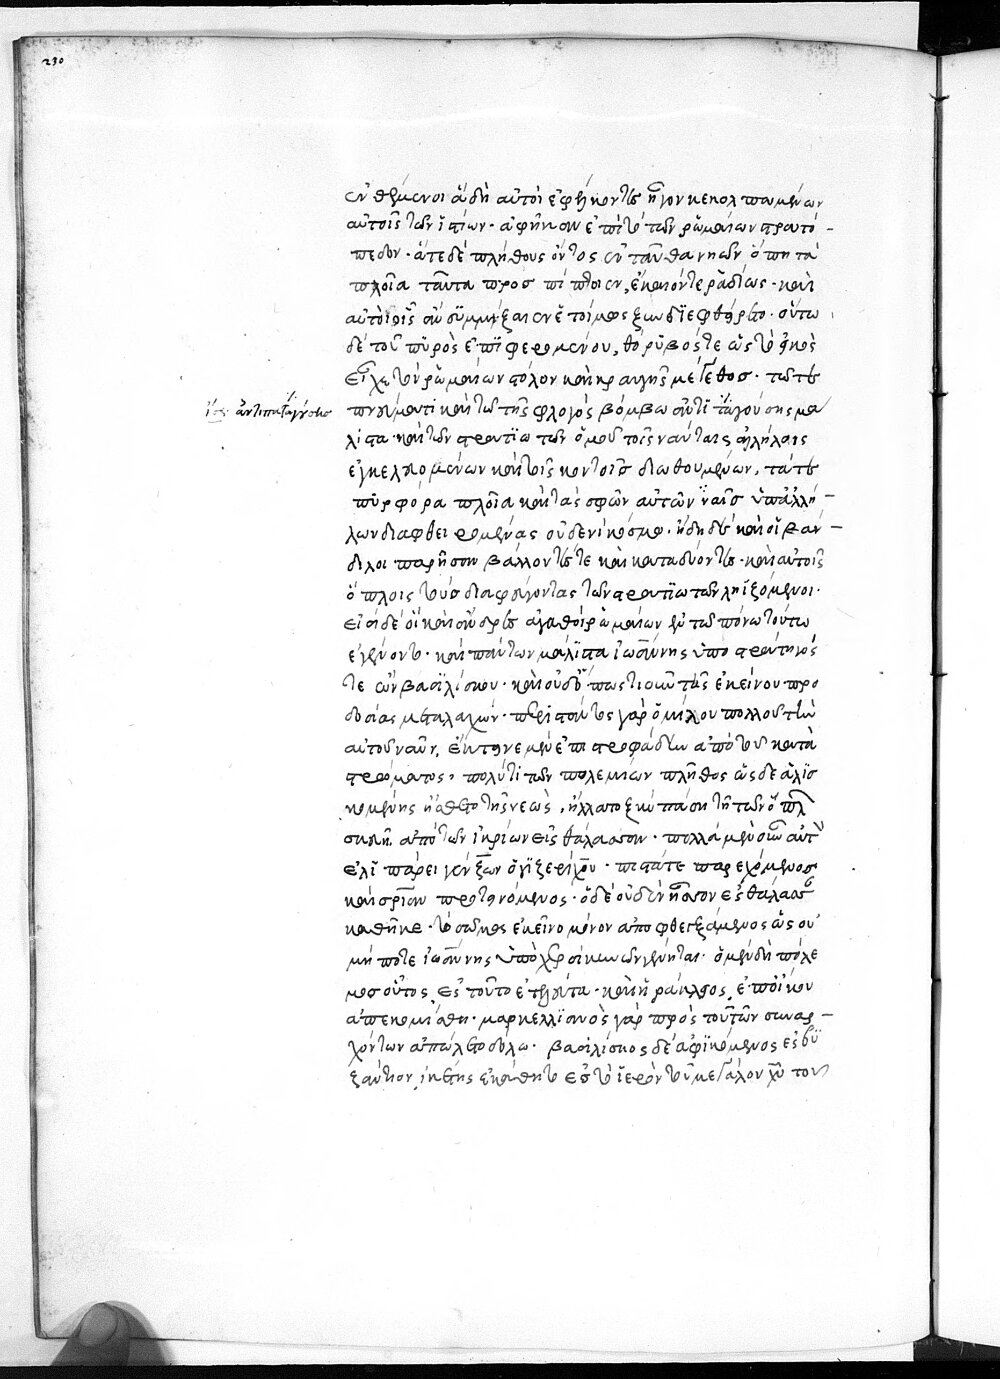 230
ἐνθέμενοι ἃ δὴ αὐτοὶ ἐφέλκοντες ἦγον κεκολπωμένων
αὐτοῖς τῶν ἱστίων· ἀφῆκαν ἐπὶ τὸ τῶν ῥωμαίων στρατό-
πεδον· ἅτε δὲ πλήθους ὄντος ἐνταῦθα νηῶν ὅπη τὰ
πλοῖα ταῦτα προσπίπτοιεν, ἔκαιόν τε ῥᾳδίως· καὶ
αὐτὰ οἷς ἂν συμμίξαιεν ἑτοίμως ξυνδιεφθείρετο· οὕτω
δὲ τοῦ πυρὸς ἐπιφερομένου, θόρυβός τε ὡς τὸ εἰκὸς
εἶχε τὸν ῥωμαίων στόλον καὶ κραυγῆς μέγεθος· τῷ τε
ἴσ. ἀντιπαταγούσης
πνεύματι καὶ τῷ τῆς φλογὸς βόμβῳ ἀντιταγούσης μά
λιστα· καὶ τῶν στρατιωτῶν ὁμοῦ τοῖς ναύταις ἀλλήλοις
ἐγκελευομένων καὶ τοῖς κοντοῖς διωθουμένων, τά τε
πυρφόρα πλοῖα καὶ τὰς σφῶν αὐτῶν ναῦς ὑπ' ἀλλή-
λων διαφθειρομένας οὐδενὶ κόσμῳ· ἤδη δὲ καὶ οἱ βαν-
δίλοι παρῆσαν βάλλοντές τε καὶ καταδύοντες· καὶ αὐτοῖς
ὅπλοις τοὺς διαφεύγοντας τῶν στρατιωτῶν ληϊζόμενοι·
εἰσὶ δὲ οἳ καὶ ἄνδρες ἀγαθοὶ ῥωμαίων ἐν τῷ πόνῳ τούτῳ
ἐγένοντο· καὶ πάντων μάλιστα ἰωάννης ὑποστράτηγός
τε ὢν βασιλίσκου· καὶ οὐδ' ὁπωστιοῦν τῆς ἐκείνου προ
δοσίας μεταλαχών· περιστάντος γὰρ ὁμίλου πολλοῦ τὴν
αὐτοῦ ναῦν, ἔκτεινε μὲν ἐπιστροφάδην ἀπὸ τοῦ κατα
στρώματος, πολύ τι τῶν πολεμίων πλῆθος ὡς δὲ ἁλισ
κομένης ᾔσθετο τῆς νεώς, ἥλατο ξὺν πάσῃ τῇ τῶν ὅπλων
σκευῇ ἀπὸ τῶν ἰκρίων εἰς θάλασσαν· πολλὰ μὲν οὖν αὐτὸν
ἐλιπάρει γένζων ὁ γιζερίχου· πιστά τε παρεχόμενος
καὶ σωτηρίαν προτεινόμενος· ὁ δὲ οὐδὲν ἧσσον ἐς θάλασσαν
καθῆκε τὸ σῶμα ἐκεῖνο μόνον ἀποφθεγξάμενος ὡς οὐ
μή ποτε ἰωάννης ὑπὸ χερσὶ κυνῶν γένηται· ὁ μὲν δὴ πόλε
μος οὗτος ἐς τοῦτο ἐτελεύτα· καὶ ἡράκλειος ἐπ' οἴκου
ἀπεκομίσθη· μαρκελλιανὸς γὰρ πρὸς του τῶν συναρ-
χόντων ἀπώλετο δόλῳ· βασιλίσκος δὲ ἀφικόμενος ἐς βυ
ζάντιον, ἱκέτης ἐκάθητο ἐς τὸ ἱερὸν τοῦ μεγάλου χυ τοῦ